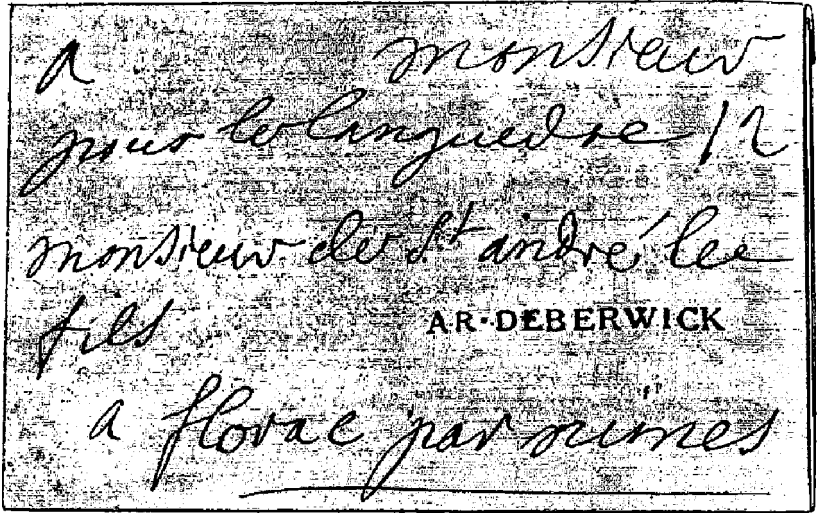 a monsieur
pour le languedoc 12
monsieur de St andré lee
fils
AR·DEBERWICK
a florac par nimes